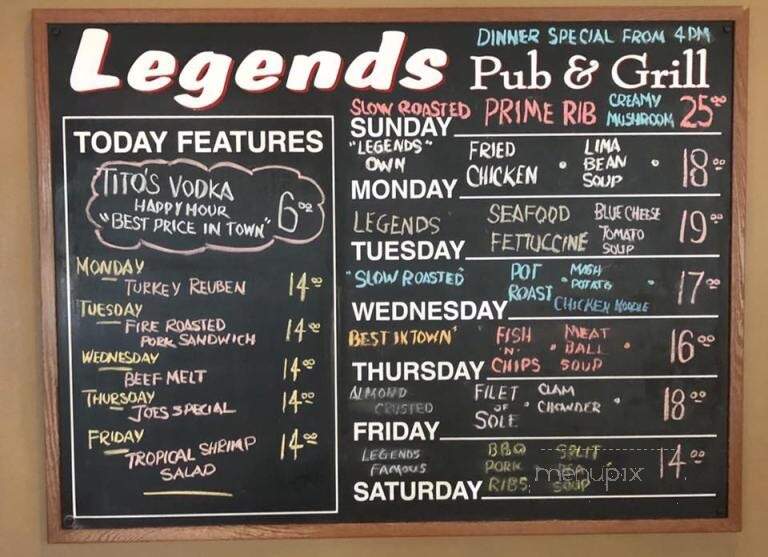 Legends
DINNER SPECIAL FROM 4PM
Pub & Grill
TODAY FEATURES
TITO'S VODKA
HAPPY HOUR
"BEST PRICE IN TOWN" 6
MONDAY
TURKEY REUBEN 14.00
TUESDAY
FIRE ROASTED
PORK SANDWICH 14.00
WEDNESDAY
BEEF MELT 14.00
THURSDAY
JOES SPECIAL 14.00
FRIDAY
TROPICAL SHRIMP 14.00
SALAD
SLOW ROASTED PRIME RIB CREAMY MUSHROOM 25.00
SUNDAY
"LEGENDS" OWN FRIED CHICKEN • LIMA BEAN SOUP • 18.00
MONDAY
LEGENDS SEAFOOD FETTUCCINE BLUE CHEESE TOMATO SOUP 19.00
TUESDAY
"SLOW ROASTED" POT ROAST MASH POTATO • CHICKEN NOODLE 17.00
WEDNESDAY
BEST IN TOWN" FISH "N" CHIPS • MEAT BALL SOUP • 16.00
THURSDAY
ALMOND CRUSTED FILET OF SOLE • CLAM CHOWDER • 18.00
FRIDAY
LEGENDS FAMOUS BBQ PORK RIBS SPLIT SOUP 14.00
SATURDAY
menupix